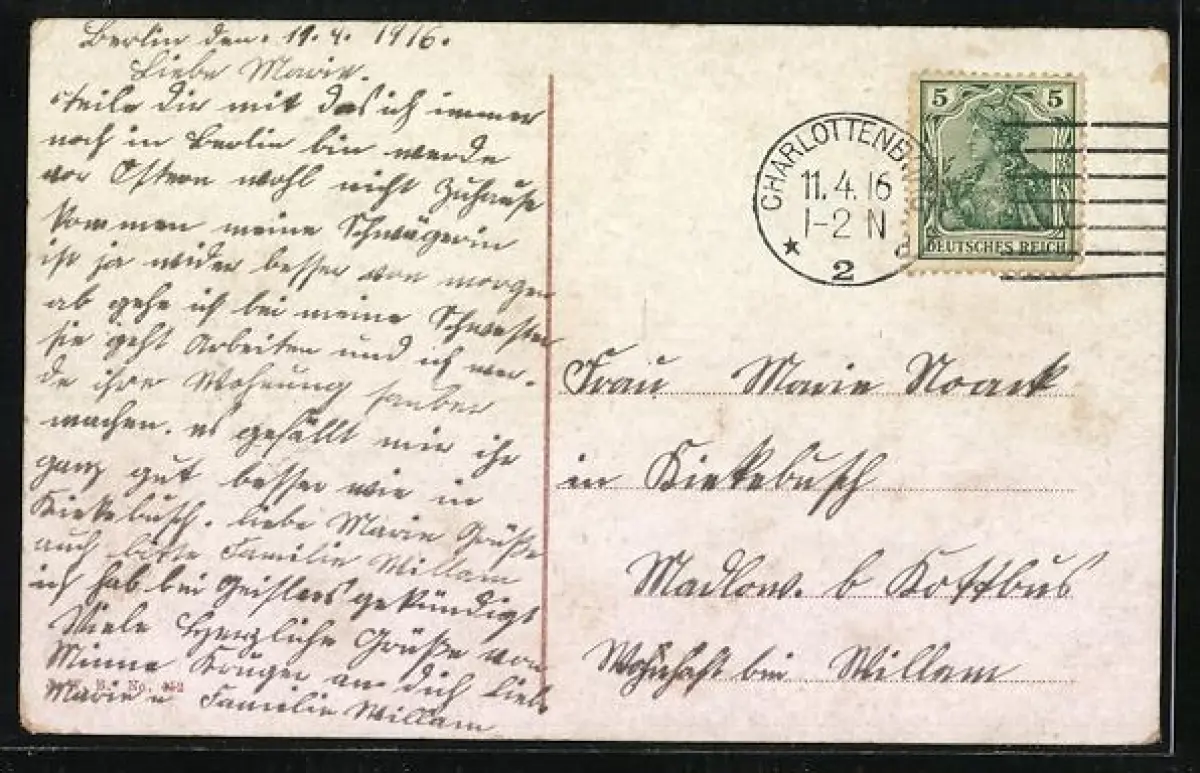 Berlin den. 11. 4. 1916.
Liebe Marie.
teile dir mit das ich immer
noch in Berlin bin werde
vor Ostern wohl nicht Zuhause
kommen meine Schwägerin
ist ja wider besser von morgen
ab gehe ich bei meine Schwester
sie geht Arbeiten und ich wer-
de ihre Wohnung sauber
machen. es gefällt mir ihr
ganz gut besser wie in
Kiekebusch. liebe Marie Grüße
auch bitte Familie Willam
ich hab bei Geislers gekündigt
Viele Herzliche Grüße von
Minna Krüger an dich liebe
Marie u Familie Willam
No. 452
CHARLOTTENB
11. 4. 16
1-2 N
2
5 5
DEUTSCHES REICH
Frau Marie Noack
in Kiekebusch
Madlow. b Kottbus
Wohnhaft bei Willam